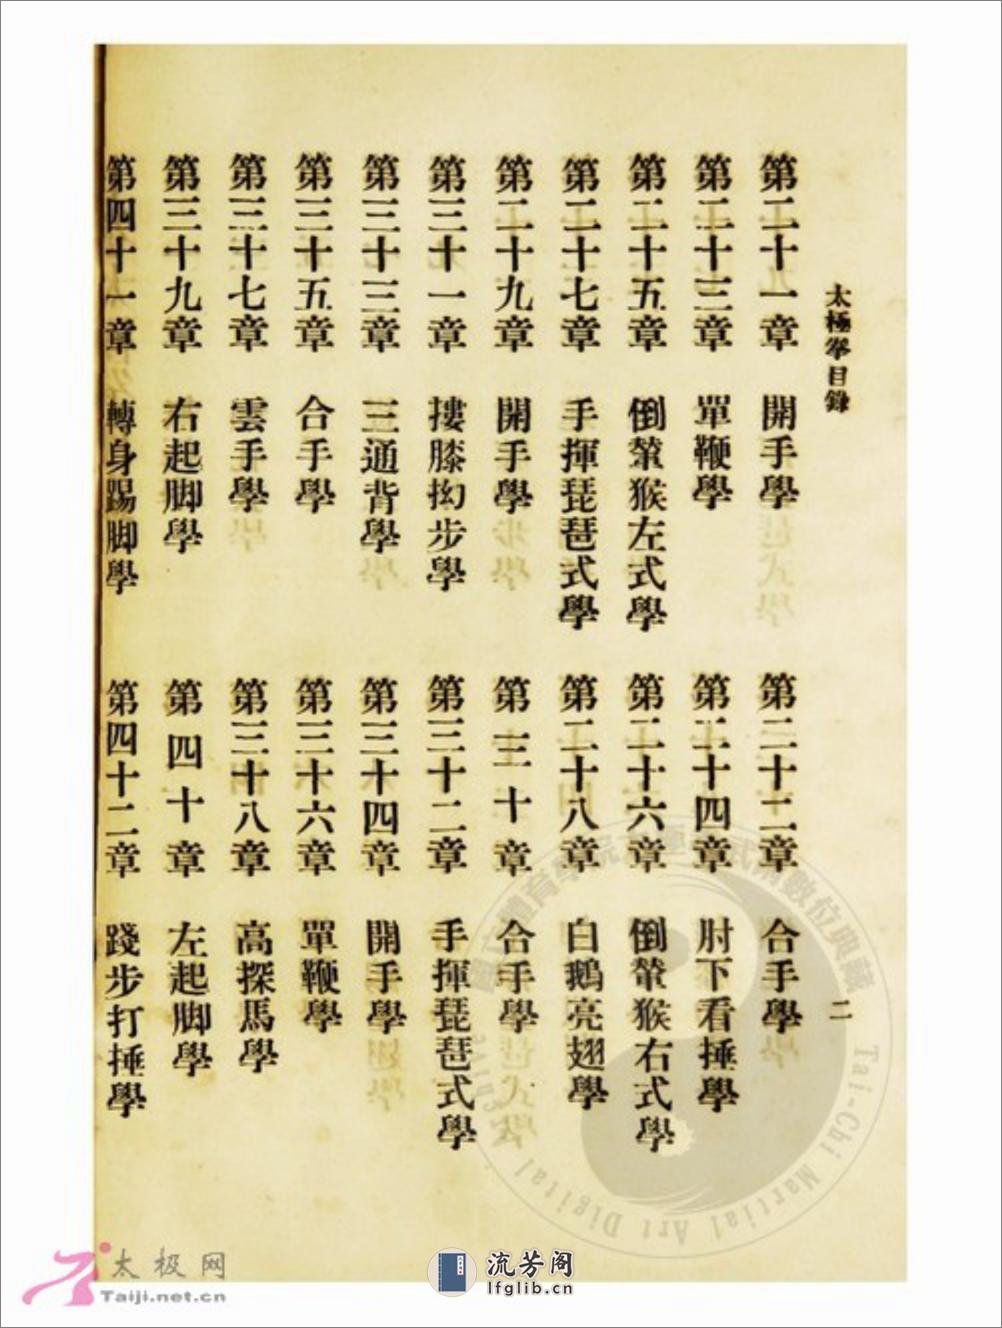 太極拳目錄
二
第二十一章 開手學
第二十二章 合手學
第二十三章 單鞭學
第二十四章 肘下看捶學
第二十五章 倒輦猴左式學
第二十六章 倒輦猴右式學
第二十七章 手揮琵琶式學
第二十八章 白鵝亮翅學
第二十九章 開手學
第三十章 合手學
第三十一章 摟膝拗步學
第三十二章 手揮琵琶式學
第三十三章 三通背學
第三十四章 開手學
第三十五章 合手學
第三十六章 單鞭學
第三十七章 雲手學
第三十八章 高探馬學
第三十九章 右起脚學
第四十章 左起脚學
第四十一章 轉身踢脚學
第四十二章 踐步打捶學
Tai-Chi Martial Art Digital
太极网
Taiji.net.cn
流芳阁
lfglib.cn